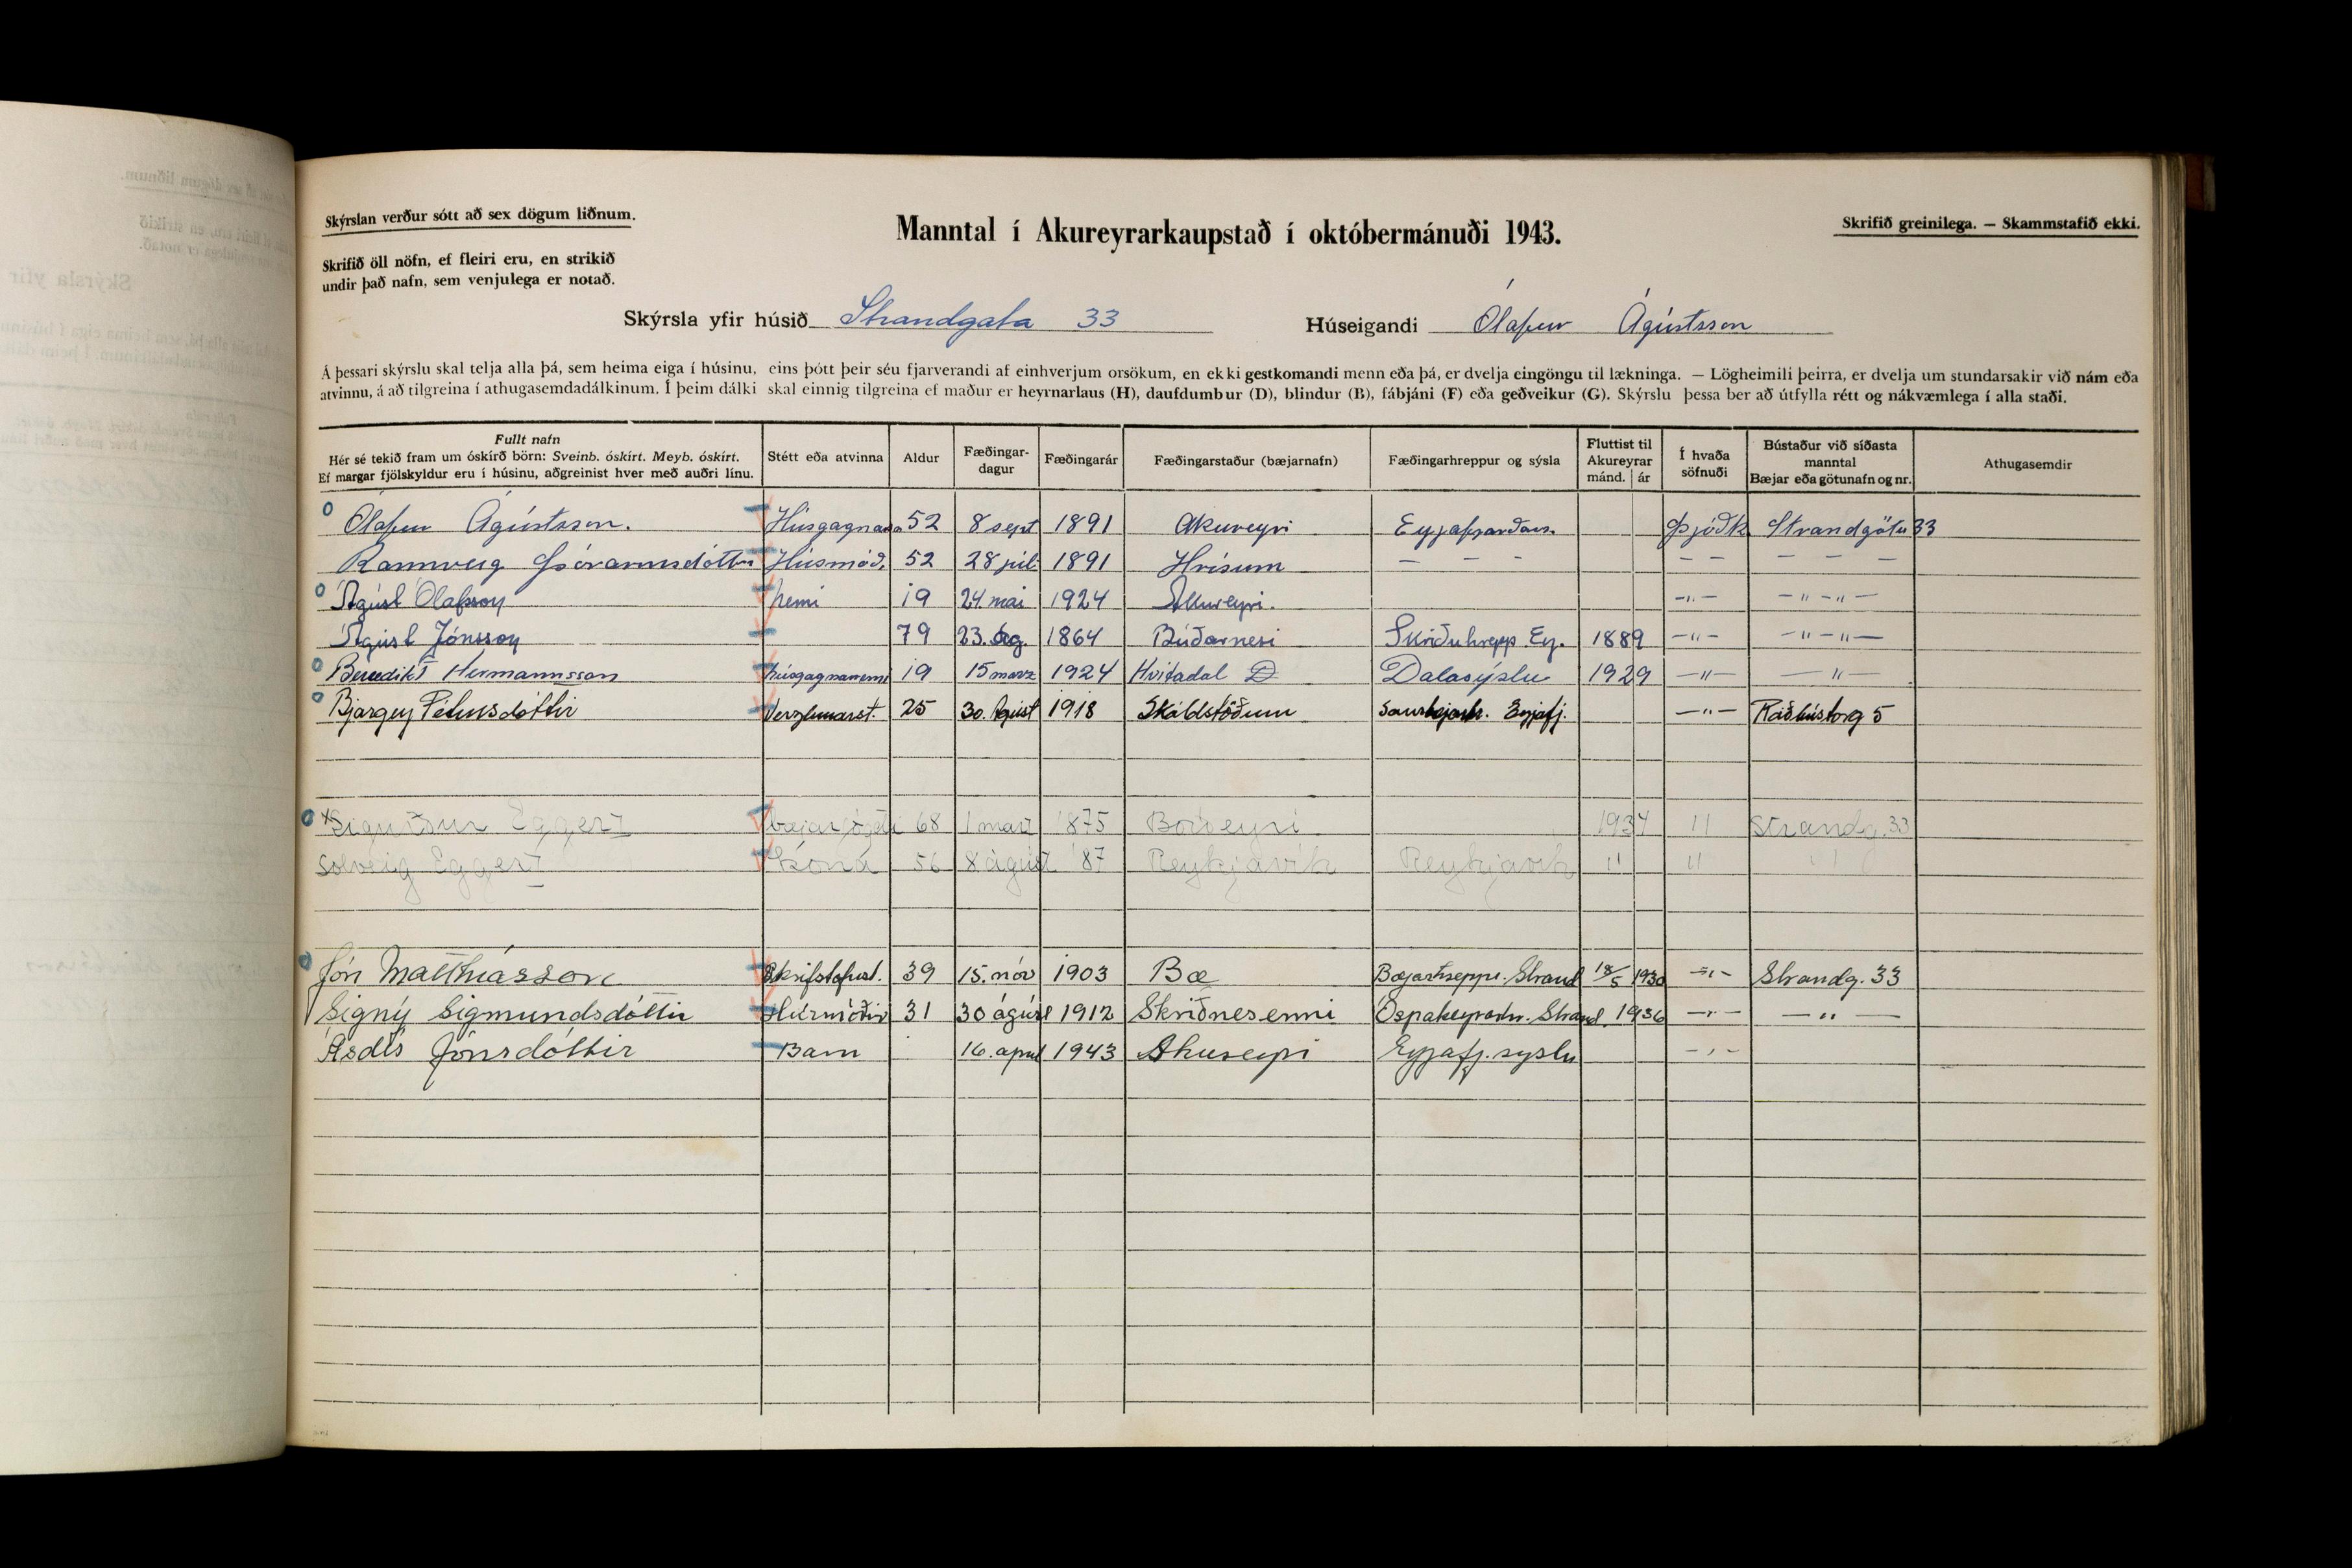 Skýrslan verður sótt að sex dögum liðnum.
Manntal í Akureyrarkaupstað í októbermánuði 1943.
Skrifið greinilega. — Skammstafið ekki.
Skrifið öll nöfn, ef fleiri eru, en strikið
undir það nafn, sem venjulega er notað.
Skýrsla yfir húsið Strandgata 33 Húseigandi Ólafur Ágústsson
Á þessari skýrslu skal telja alla þá, sem heima eiga í húsinu, eins þótt þeir séu fjarverandi af einhverjum orsökum, en ekki gestkomandi menn eða þá, er dvelja eingöngu til lækninga. — Lögheimili þeirra, er dvelja um stundarsakir við nám eða
atvinnu, á að tilgreina í athugasemdadálkinum. Í þeim dálki skal einnig tilgreina ef maður er heyrnarlaus (H), daufdumbur (D), blindur (B), fábjáni (F) eða geðveikur (G). Skýrslu þessa ber að útfylla rétt og nákvæmlega í alla staði.
Fullt nafn
Hér sé tekið fram um óskírð börn: Sveinb. óskírt. Meyb. óskírt.
Ef margar fjölskyldur eru í húsinu, aðgreinist hver með auðri línu.
Stétt eða atvinna
Aldur
Fæðingar-
dagur
Fæðingarár
Fæðingarstaður (bæjarnafn)
Fæðingarhreppur og sýsla
Fluttist til
Akureyrar
mánd. ár
Í hvaða
söfnuði
Bústaður við síðasta
manntal
Bæjar eða götunafn og nr.
Athugasemdir
Ólafur Ágústsson. 52 8 sept 1891 Akureyri Eyjafjarðars. Þjóðk. Strandgötu 33
Rannveig Þórarinsdóttir Húsmóð. 52 28 júl. 1891 Hrísum — - - — — — — —
Ágúst Ólafsson nemi 19 24. mai 1924 Akureyri. -"- -"-"-
Ágúst Jónsson 79 23. ág. 1864 Búðarnesi Skriðuhrepp. Ey. 1889 -"- -"-"-
Benedikt Hermannsson húsgagnanemi 19 15 marz 1924 Hvítadal D Dalasýslu 1929 -"- -"-
Bjargey Pétursdóttir Verzlunarst. 25 30. ágúst 1918 Skáldstöðum Saurbæjarhr. Eyjafj. -"- Ráðhústorg 5
Sigurður Eggerz bæjarfógeti 68 1 marz 1875 Borðeyri 1934 " Strandg. 33
Solveig Eggerz Kona 56 8 ágúst '87 Reykjavík Reykjavík " " "
Jón Matthíasson Skrifstofust. 39 15. nóv 1903 Bæ Bæjarhreppi. Strand 18/5 1930 -"- Strandg. 33
Signý Sigmundsdóttir Húsmóðir 31 30 ágúst 1912 Skriðnesenni Óspakeyrarhr. Strand. 1936 -"- -"-
Ásdís Jónsdóttir Barn 16. apríl 1943 Akureyri Eyjafj. sýslu -"-